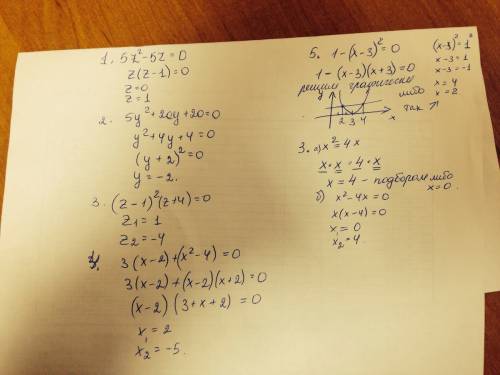 1. 5z²-5z=0
z(z-1)=0
z=0
z=1
2. 5y²+20y+20=0
y²+4y+4=0
(y+2)²=0
y=-2.
3. (z-1)²(z+4)=0
z₁=1
z₂=-4
4. 3(x-2)+(x²-4)=0
3(x-2)+(x-2)(x+2)=0
(x-2)(3+x+2)=0
x₁=2
x₂=-5.
5. 1-(x-3)²=0
1-(x-3)(x+3)=0
решим графически
2 3 4
x
либо
так ↗
(x-3)²=1²
x-3=1
x-3=-1
x=4
x=2
3. а) x²=4x
x·x=4·x
x=4 - подбором либо
x=0.
б) x²-4x=0
x(x-4)=0
x₁=0
x₂=4.